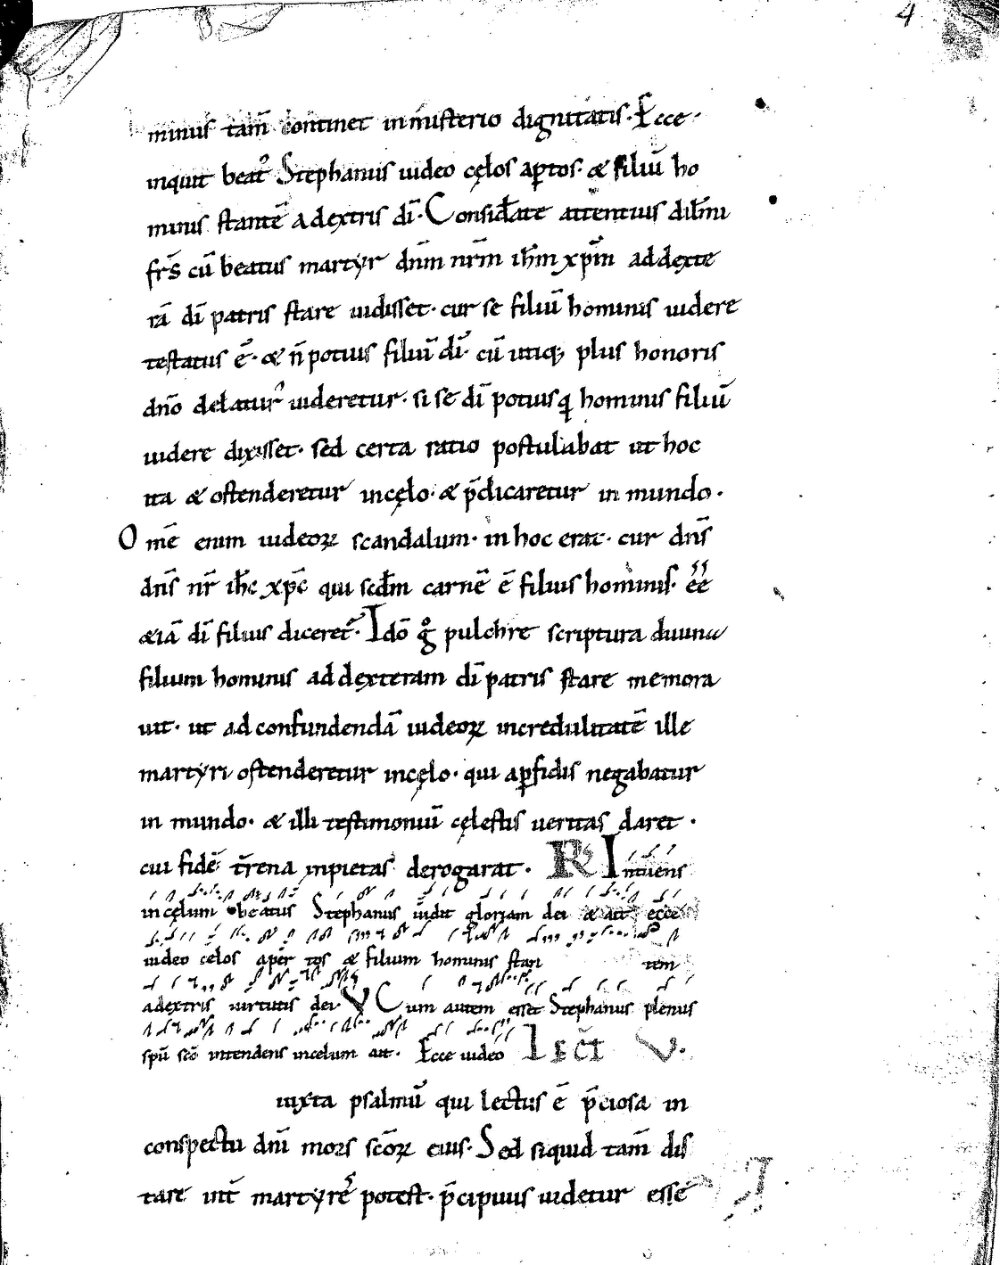 4
minus tam̄ continet inministerio dignitatis· Ecce·
inquit beat᷒ Stephanus uideo cęlos aꝑtos· & filiū ho
minis stantē adextris dī· Considerate attentius dil̄mi
frs̄ cū beatus martyr dn̄m nr̄m ih̄m xp̄m addexte
rā dī patris stare uidisset· cur se filiū hominis uidere
testatus ē· & n̄ potius filiū dī· cū utiq; plus honoris
dn̄o delatur᷒ uideretur· si se dī potius ꝗ hominis filiū
uidere dixisset· sed certa ratio postulabat ut hoc
ita & ostenderetur incęlo· & p̄dicaretur in mundo·
Om̄e enim iudeoꝝ scandalum· in hoc erat· cur dn̄s
dn̄s nr̄ ih̄c xp̄c qui scdm̄ carnē ē filius hominis· ēē
&iā dī filius diceret᷒· Idō g̊ pulchre scriptura diuina
filium hominis addexteram dī patris stare memora
uit· ut ad confundendā iudeoꝝ incredulitatē ille
martyri ostenderetur incęlo· qui aꝑfidis negabatur
in mundo· & illi testimoniū cęlestis ueritas daret·
cui fidē t̄rena inpietas derogarat· R Intuens
incęlum beatus Stephanus uidit gloriam dei & ait ecce
uideo celos aper tos & filium hominis stan tem
adextris uirtutis dei V Cum autem esset Stephanus plenus
spū scō intendens incelum ait· Ecce uideo Lect̄ V·
iuxta psalmū qui lectus ē p̄ciosa in
conspectu dnī mors scōꝝ eius· Sed siquid tam̄ dis
tare int̄ martyrē potest· p̄cipuus uidetur esse